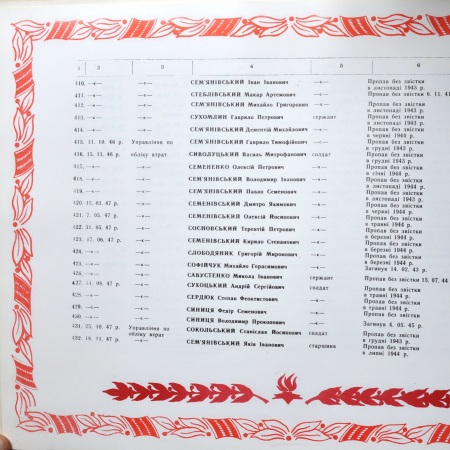 1 2 3 4 5 6
410. —«— —«— СЕМ'ЯНІВСЬКИЙ Іван Іванович —«— Пропав без звістки
в листопаді 1943 р.
411. —«— —«— СТЕБЛІВСЬКИЙ Макар Артемович —«— Пропав без звістки 6. 11. 4
412. —«— —«— СЕМ'ЯНІВСЬКИЙ Михайло Григорович —«— Пропав без звістки
в листопаді 1943 р.
413. —«— —«— СУХОМЛИН Гаврило Петрович сержант Пропав без звістки
в грудні 1943 р.
414. —«— —«— СЕМ'ЯНІВСЬКИЙ Дементій Михайлович —«— Пропав без звістки
в червні 1944 р.
415. 11. 10. 46 р. Управління по СЕМ'ЯНІВСЬКИЙ Гаврило Тимофійович —«— Пропав без звістки
в грудні 1943 р.
416. 15. 11. 46 р. обліку втрат СИВОЛУЦЬКИЙ Василь Митрофанович солдат Пропав без звістки
в грудні 1943 р.
417. —«— —«— СЕМЕНЕНКО Олексій Петрович —«— Пропав без звістки
в січні 1944 р.
418. —«— —«— СЕМ'ЯНІВСЬКИЙ Володимир Іванович —«— Пропав без звістки
в листопаді 1944 р.
419. —«— —«— СЕМ'ЯНІВСЬКИЙ Павло Семенович —«— Пропав без звістки
в листопаді 1943 р.
420. 47 р. —«— СЕМЕНІВСЬКИЙ Дмитро Якимович —«— Пропав без звістки
в червні 1944 р.
421. 7. 05. 47 р. —«— СЕМЕНІВСЬКИЙ Олексій Йосипович —«— Пропав без звістки
в травні 1944 р.
422. 05. 47 р. —«— СОСНОВСЬКИЙ Терентій Петрович —«— Пропав без звістки
в березні 1944 р.
423. 17. 06. 47 р. —«— СЕМЕНІВСЬКИЙ Кирило Степанович —«— Пропав без звістки
в грудні 1943 р.
424. —«— —«— СЛОБОДЯНИК Григорій Миронович —«— Пропав без звістки
в березні 1944 р.
425. —«— —«— СОФІЙЧУК Михайло Герасимович —«— Загинув 14. 02. 43 р.
426. —«— —«— САВУСТЕНКО Микола Іванович сержант Пропав без звістки 15. 07. 44
427. 08. 47 р. —«— СУХОЦЬКИЙ Андрій Сергійович солдат Пропав без звістки
в травні 1944 р.
428. —«— —«— СЕРДЮК Степан Феоктистович —«— Пропав без звістки
в травні 1944 р.
429. —«— —«— СИНИЦЯ Федір Семенович —«— Пропав без звістки
430. —«— —«— СИНИЦЯ Володимир Прокопович —«— Загинув 4. 05. 45 р.
431. 25. 10. 47 р. Управління по СОКОЛЬСЬКИЙ Станіслав Йосипович солдат Пропав без звістки
обліку втрат в грудні 1943 р.
432. 11. 47 р. СЕМ'ЯНІВСЬКИЙ Яків Іванович старшина Пропав без звістки
в липні 1944 р.